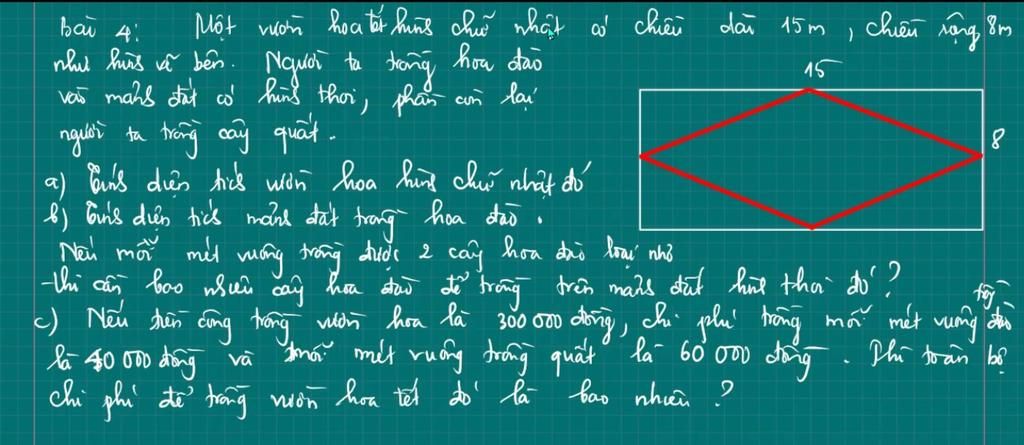 Bài 4: Một vườn hoa tết hình chữ nhật có chiều dài 15m, chiều rộng 8m
như hình vẽ bên. Người ta trồng hoa đào
vào mảnh đất có hình thoi, phần còn lại
người ta trồng cây quất.
15
8
a) Tính diện tích vườn hoa hình chữ nhật đó
b) Tính diện tích mảnh đất trồng hoa đào.
Nếu mỗi mét vuông trồng được 2 cây hoa đào loại nhỏ
thì cần bao nhiêu cây hoa đào để trồng trên mảnh đất hình thoi đó?
c) Nếu tiền công trồng vườn hoa là 300 000 đồng, chi phí trồng mỗi mét vuông trồng đào
là 40 000 đồng và mỗi mét vuông trồng quất là 60 000 đồng. Thì toàn bộ
chi phí để trồng vườn hoa tết đó là bao nhiêu?